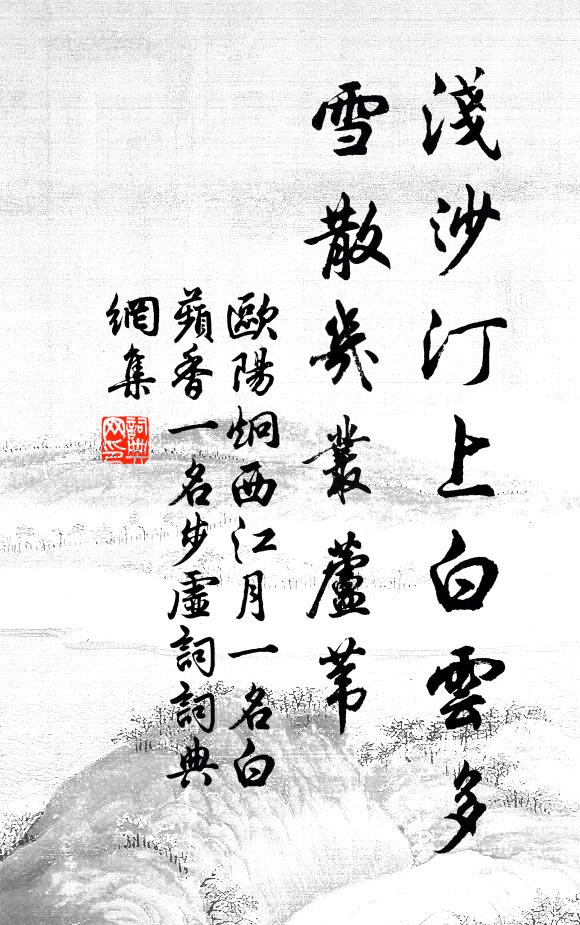 淺沙汀上白雲多
雪散幾叢蘆葦
歐陽炯西江月一名白
蘋香一名步虛詞詞典
網集
詞典
网印